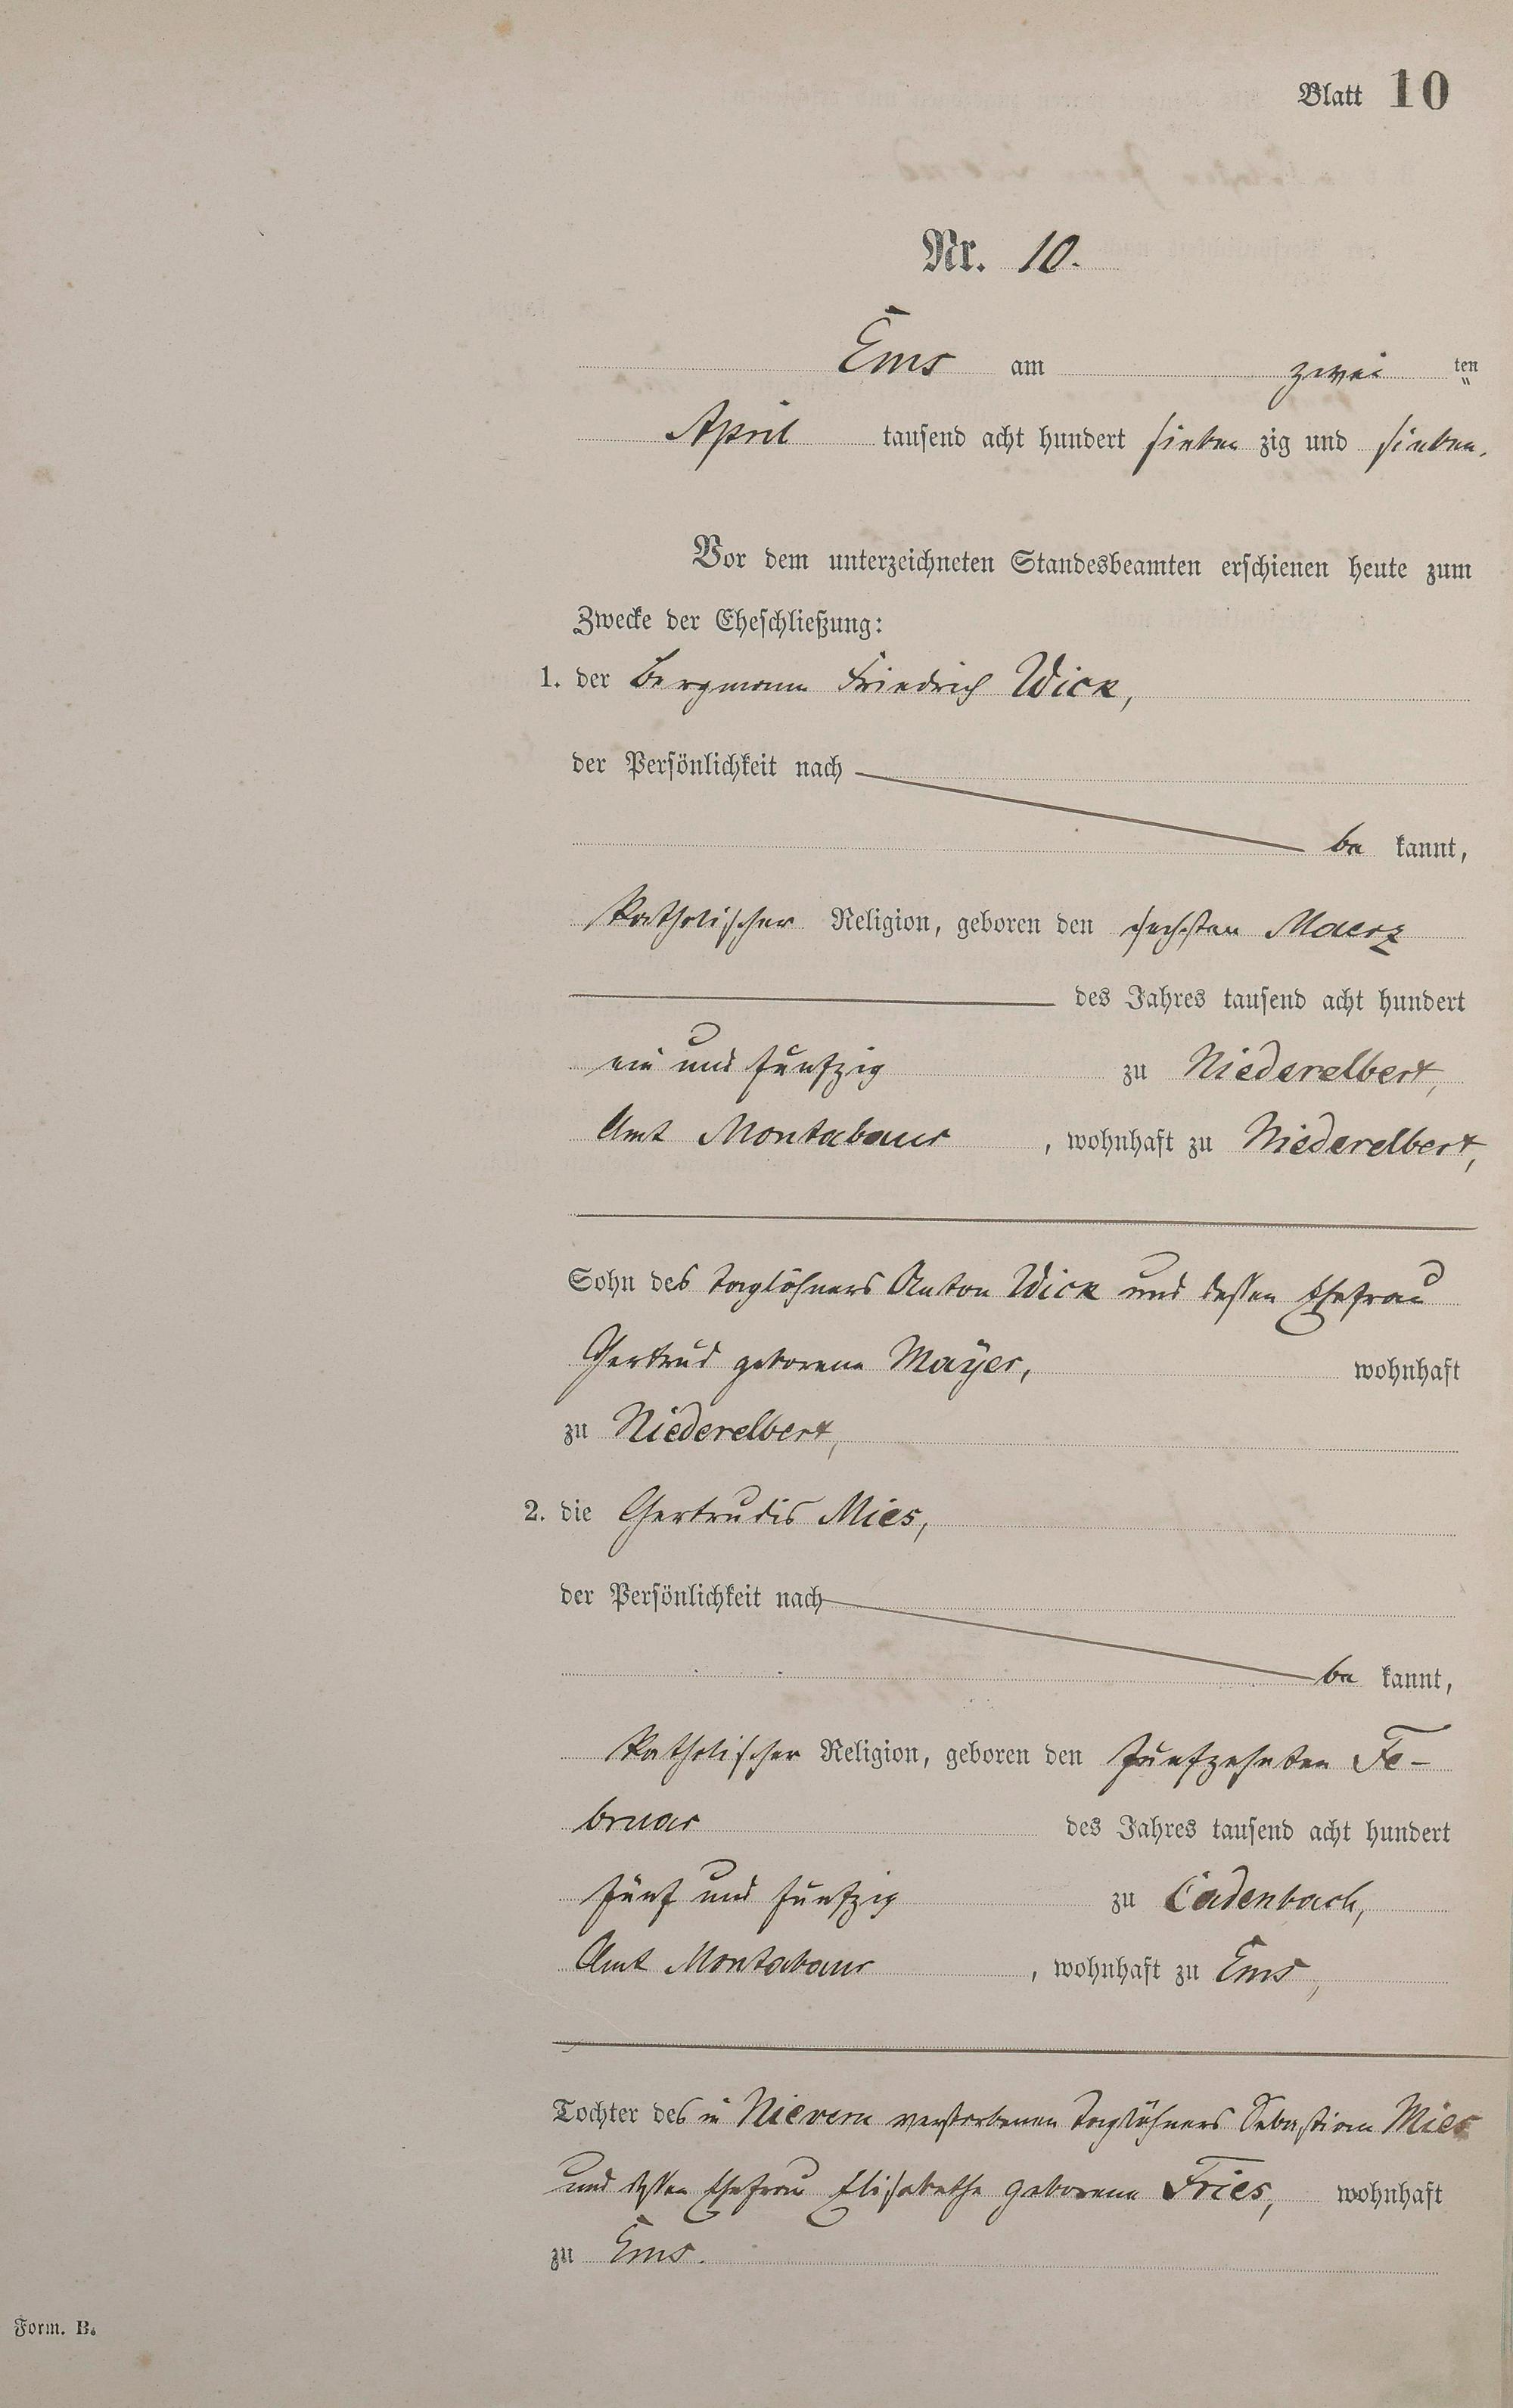 Blatt 10
Nr. 10.
Ems am zwei ten
"
April tausend acht hundert sieben zig und sieben.
Vor dem unterzeichneten Standesbeamten erschienen heute zum
Zwecke der Eheschließung:
1. der Bergmann Friedrich Wick,
der Persönlichkeit nach
be kannt,
katholischer Religion, geboren den sechsten Maerz
des Jahres tausend acht hundert
ein und fünfzig zu Niederelbert,
Amt Montabaur, wohnhaft zu Niederelbert,
Sohn des Taglöhners Anton Wick und dessen Ehefrau
Gertrud geborene Mayer, wohnhaft
zu Niederelbert,
2. die Gertrudis Mies,
der Persönlichkeit nach
be kannt,
katholischer Religion, geboren den fünfzehnten Fe-
bruar des Jahres tausend acht hundert
fünf und fünfzig zu Cadenbach,
Amt Montabaur, wohnhaft zu Ems,
Tochter des in Nievern verstorbenen Taglöhners Sebastian Mies
und dessen Ehefrau Elisabethe geborene Fries, wohnhaft
zu Ems.
Form. B.